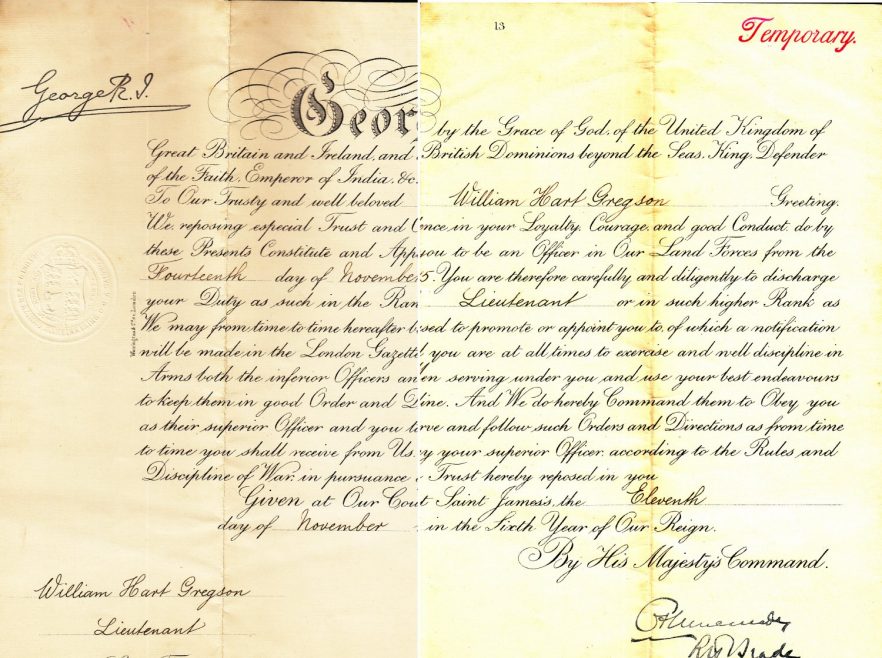 13
Temporary.
George R.I.
Geor by the Grace of God, of the United Kingdom of
Great Britain and Ireland, and British Dominions beyond the Seas, King, Defender
of the Faith, Emperor of India, &c.
To Our Trusty and well beloved William Hart Gregson Greeting.
We, reposing especial Trust and C nce in your Loyalty, Courage, and good Conduct, do by
these Presents Constitute and App you to be an Officer in Our Land Forces from the
Fourteenth day of November 5. You are therefore carefully and diligently to discharge
your Duty as such in the Ran Lieutenant or in such higher Rank as
We may from time to time hereafter b sed to promote or appoint you to, of which a notification
will be made in the London Gazett you are at all times to exercise and well discipline in
Arms both the inferior Officers an en serving under you and use your best endeavours
to keep them in good Order and D line. And We do hereby Command them to Obey you
as their superior Officer and you to rve and follow such Orders and Directions as from time
to time you shall receive from Us, y your superior Officer, according to the Rules and
Discipline of War, in pursuance Trust hereby reposed in you
Given at Our Cou Saint James's, the Eleventh
day of November in the Sixth Year of Our Reign.
By His Majesty's Command.
William Hart Gregson
Lieutenant